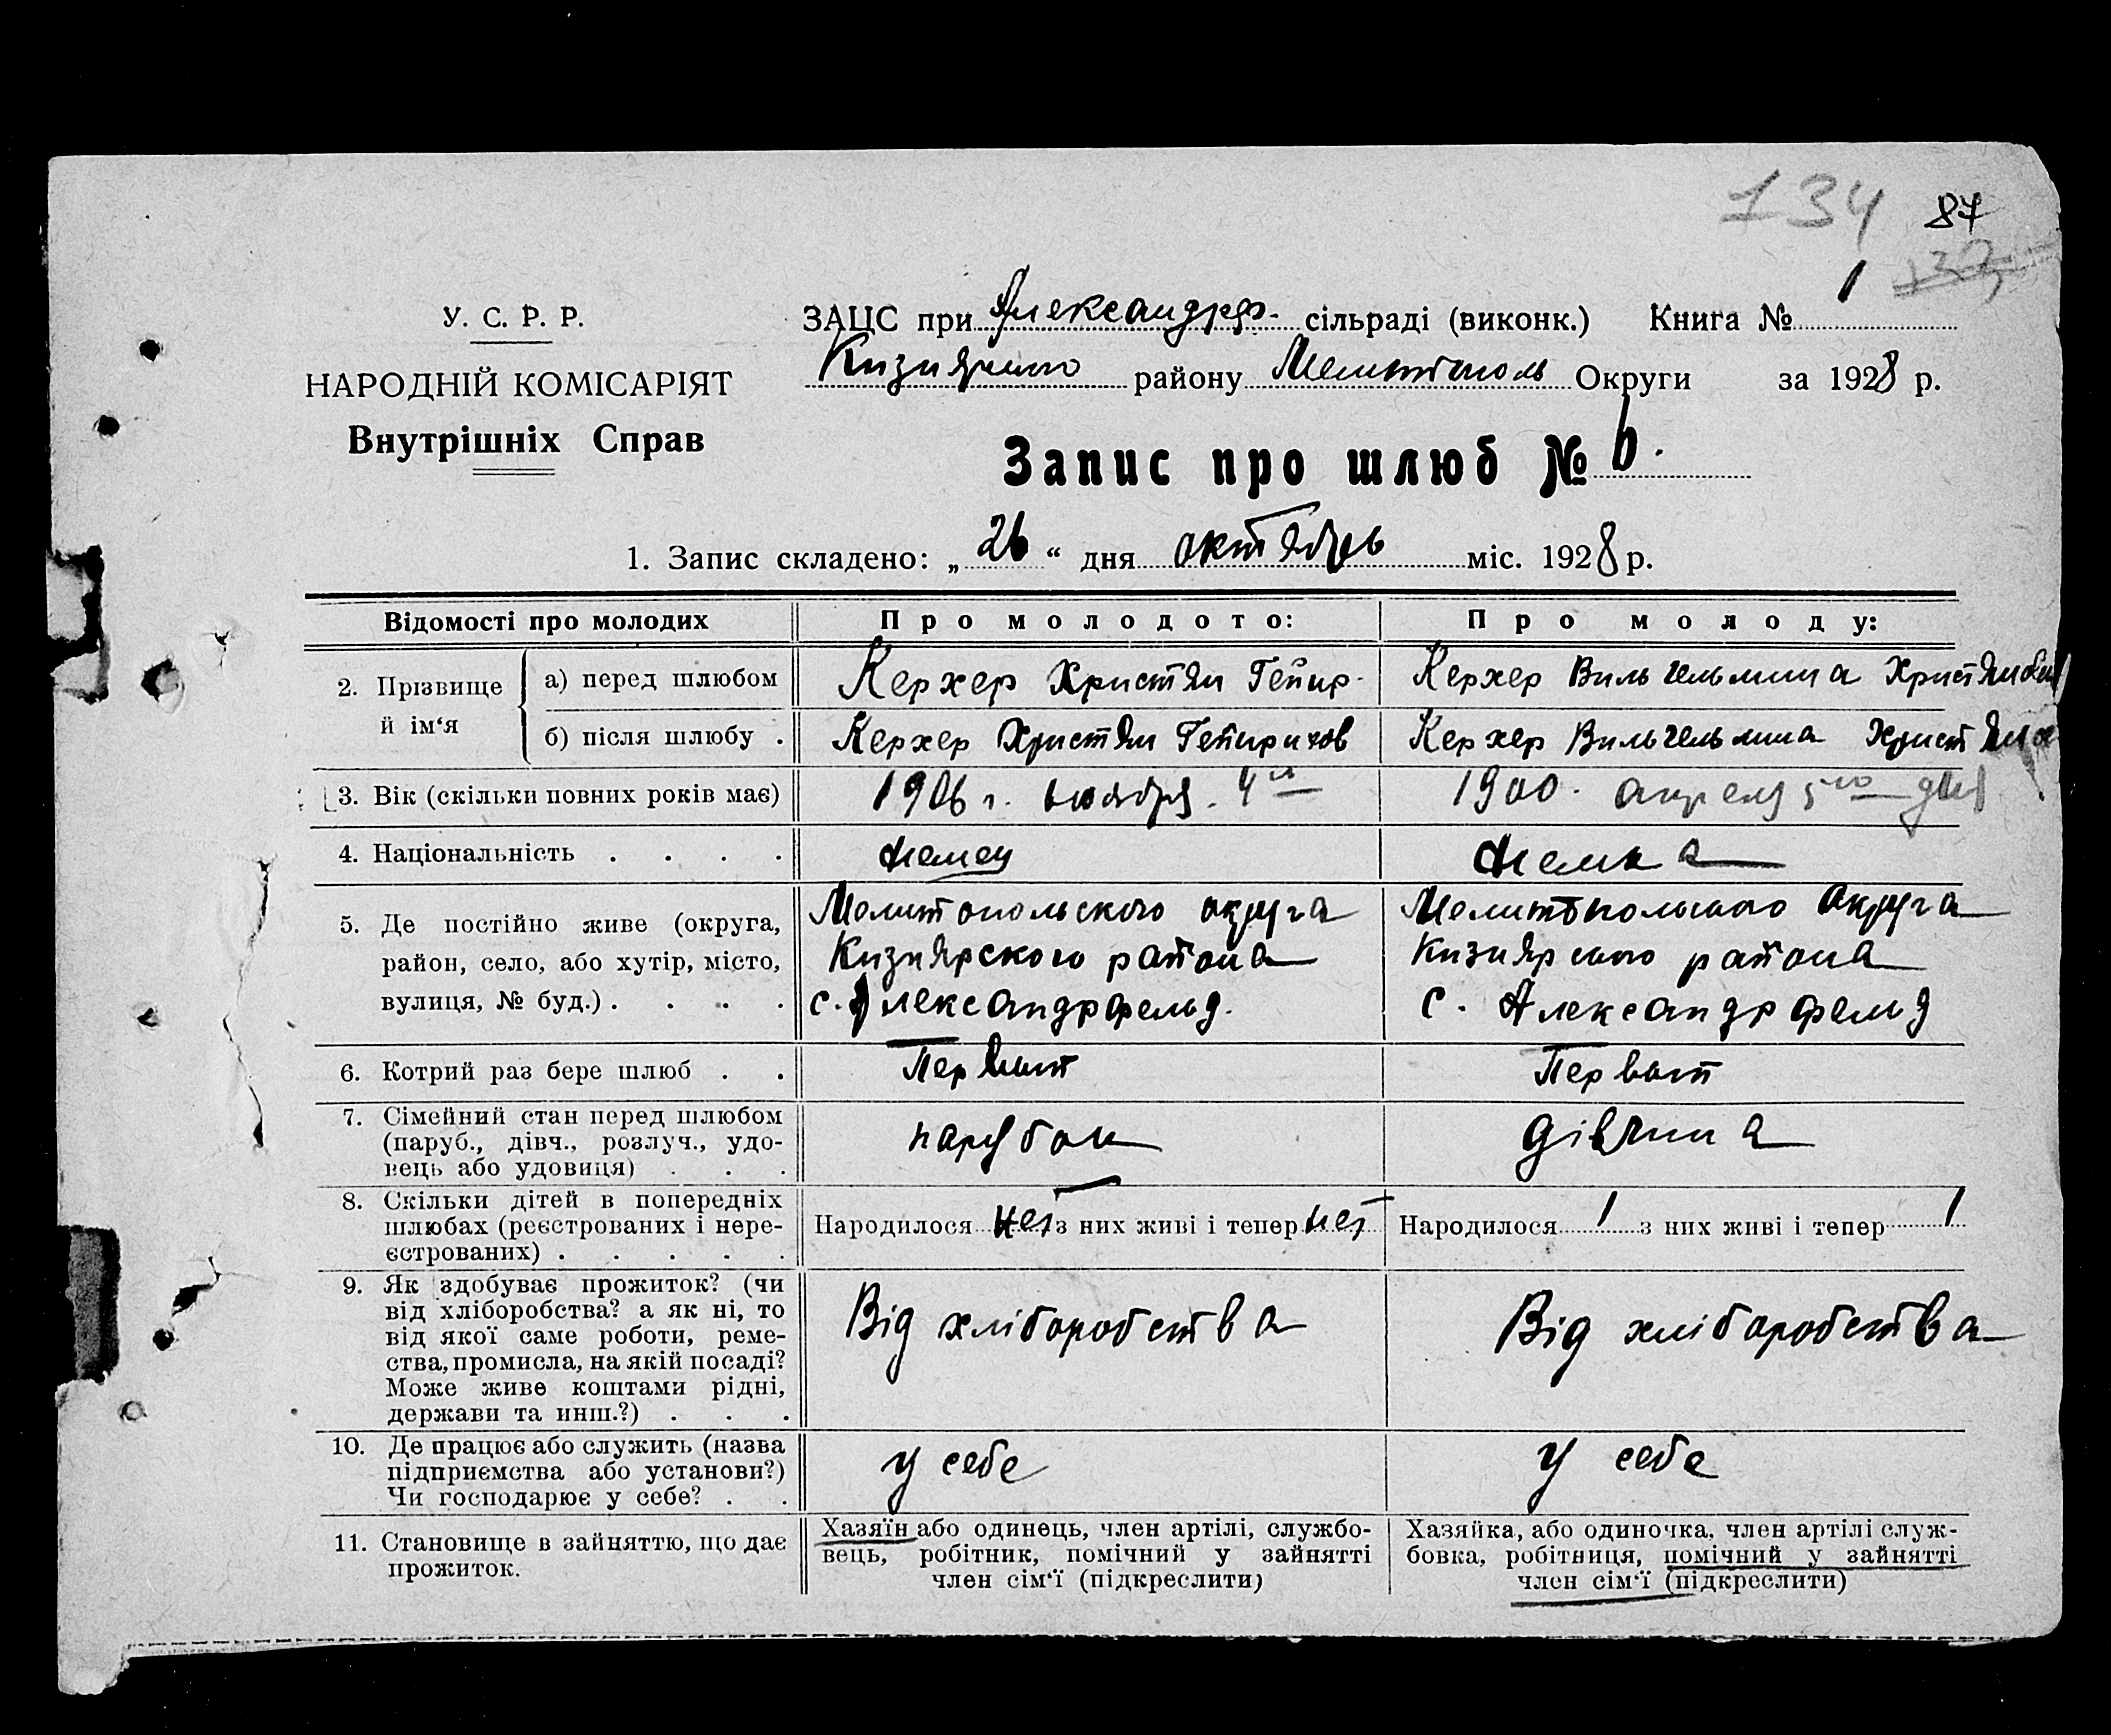 134 87
132
У. С. Р. Р.
НАРОДНІЙ КОМІСАРІЯТ
Внутрішніх Справ
ЗАЦС при Александрф. сільраді (виконк.) Книга № 1
району Мелитополь Округи за 1928 р.
Запис про шлюб № 6.
1. Запис складено: „26“ дня октябрь міс. 1928 р.
Відомості про молодих Про молодого: Про молоду:
2. Прізвище й ім‘я
а) перед шлюбом Керхер Христян Гейнр. Керхер Вильгельмина
б) після шлюбу . Керхер Христян Гейнрихов Керхер Вильгельмина
3. Вік (скільки повних років має) 1906 г. 4го 1900. апреля 5го дня
4. Національність . . . . Немец Немка
5. Де постійно живе (округа, район, село, або хутір, місто, вулиця, № буд.) . . . .
Мелитопольского округа
Кизиярского района
с. Александрфельд.
Мелитопольского округа
Кизиярского района
с. Александрфельд
6. Котрий раз бере шлюб . . Первый Первый
7. Сімейний стан перед шлюбом (паруб., дівч., розлуч., удовець або удовиця) . . . парубок дівчина
8. Скільки дітей в попередніх шлюбах (реєстрованих і нереєстрованих) . . . . .
Народилося нет з них живі і тепер нет Народилося 1 з них живі і тепер 1
9. Як здобуває прожиток? (чи від хліборобства? а як ні, то від якої саме роботи, ремества, промисла, на якій посаді? Може живе коштами рідні, держави та инш.?) . . .
Від хліборобства Від хліборобства
10. Де працює або служить (назва підприємства або установи?) Чи господарює у себе? . .
у себе у себе
11. Становище в зайняттю, що дає прожиток.
Хазяїн або одинець, член артілі, службовець, робітник, помічний у зайнятті член сім‘ї (підкреслити)
Хазяйка, або одиночка, член артілі службовка, робітниця, помічний у зайнятті член сім‘ї (підкреслити)